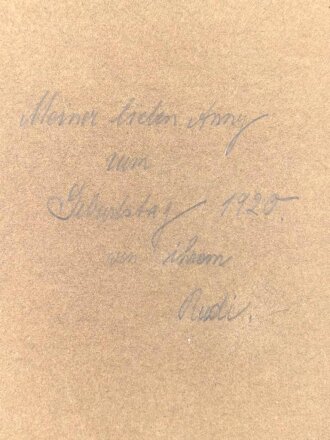 Meiner lieben Anny
zum
Geburtstag 1920.
von ihrem
Rudi.